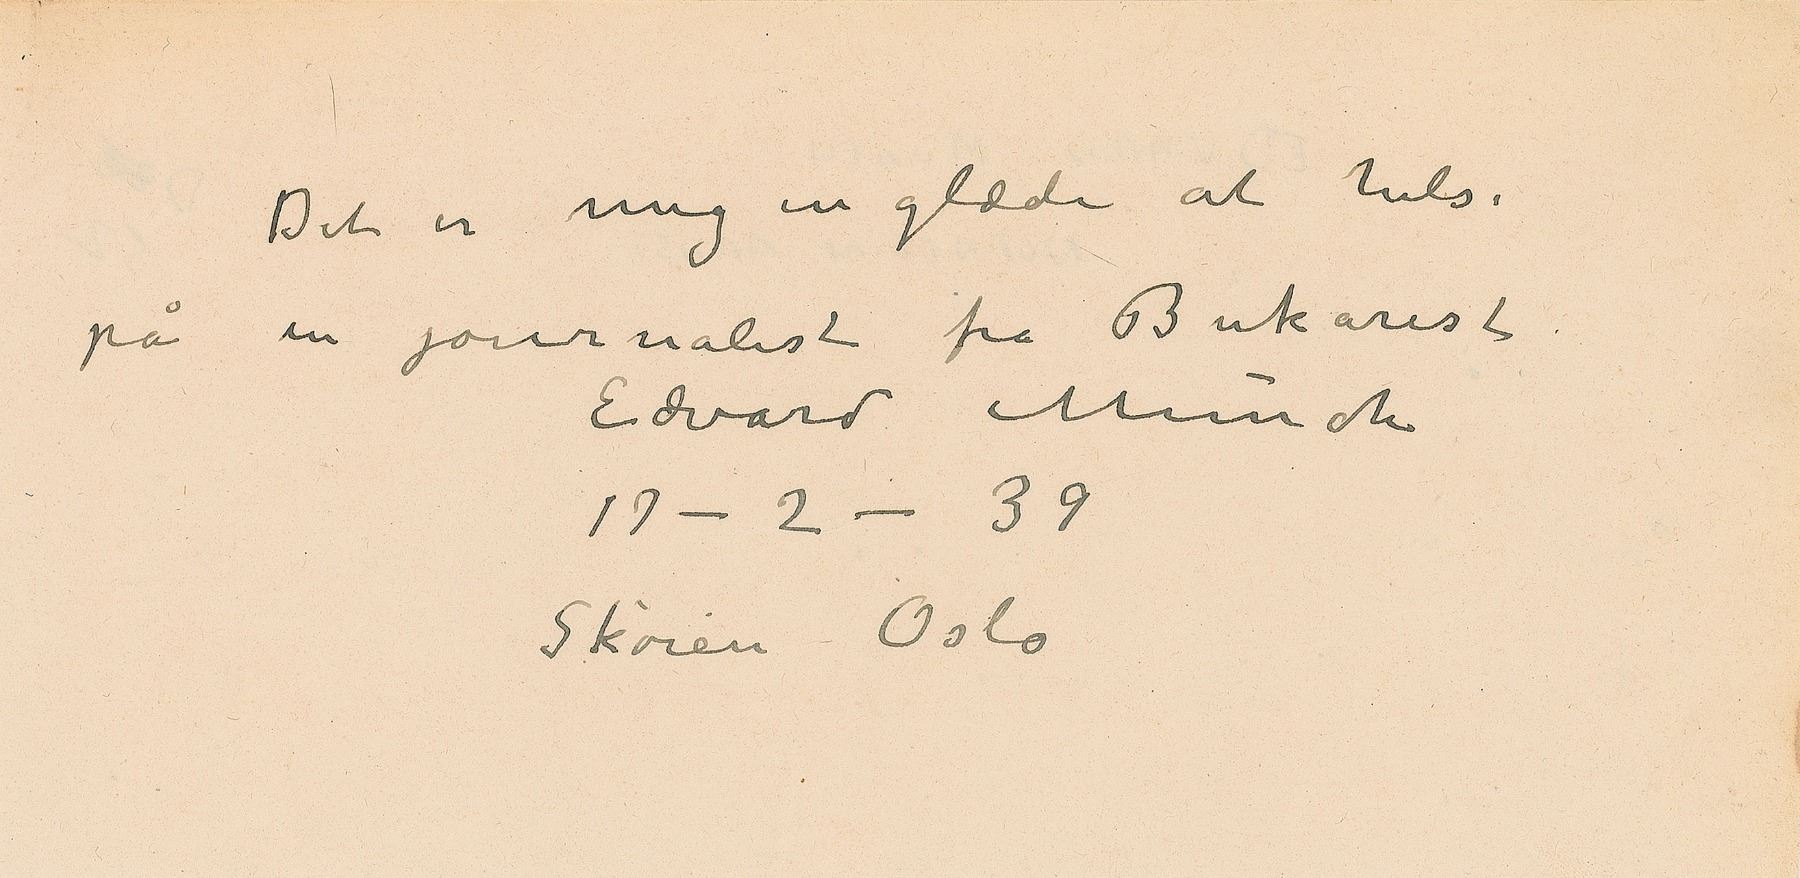 Det er mig en glæde at hels.
på en journalist fra Bukarest.
Edvard Munch
17 – 2 – 39
Skøien Oslo